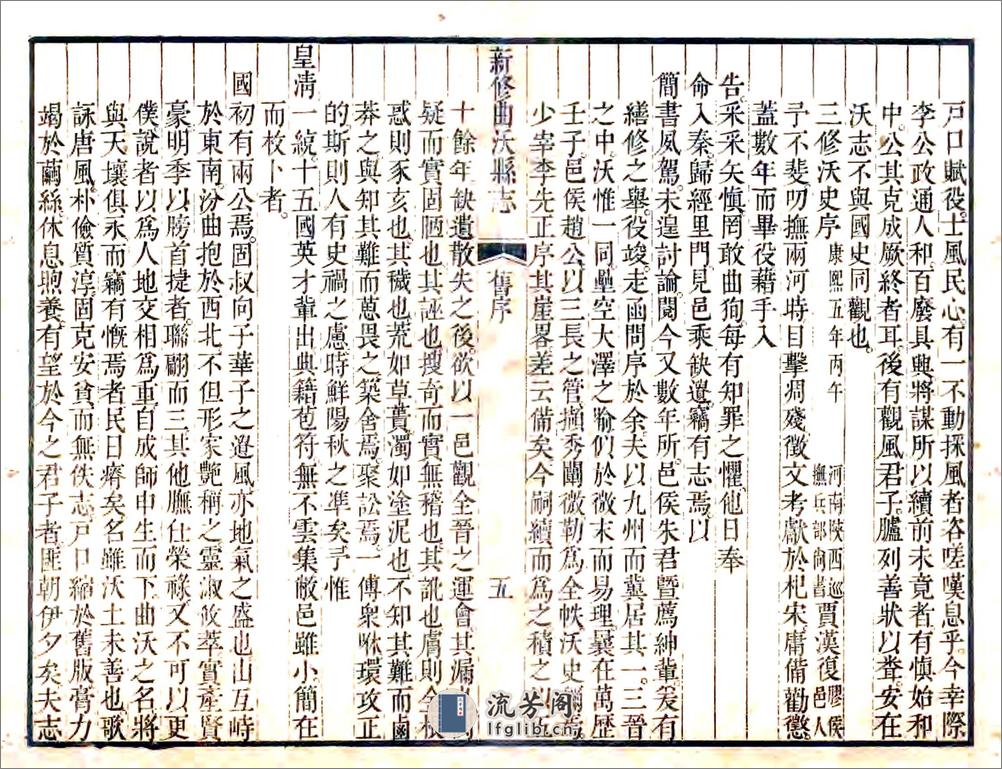 戸口賦役。士風民心。有一不動採風者咨嗟嘆息乎。今幸際
李公政通人和。百廢具興。將謀所以續前未竟者。有愼始和
中。公其克成厥終者耳。後有觀風君子。臚列善狀以聳。安在
沃志不與國史同觀也。
三修沃史序 康熙五年丙午 河南陝西巡撫兵部尙書賈漢復膠侯邑人
予不斐。叨撫兩河。時目擊凋殘。徵文考獻於杞宋。庸備勸懲
蓋數年而畢役。藉手入
告。采采矣。愼罔敢曲狥。每有知罪之懼。他日奉
命入秦。歸經里門。見邑乘缺遺。竊有志焉。以
簡書夙駕。未遑討論。閱今又數年所。邑侯朱君暨薦紳輩。爰有
繕修之舉。役竣。走函問序於余。夫以九州而冀居其一。三晉
之中。沃惟一同。壘空大澤之喻。們於微末而易理。曩在萬歷
壬子。邑侯趙公以三長之管。擷秀闡微。勒爲全帙。沃史
少宰李先正序其崖畧。差云備矣。今嗣續而爲之。積之
新修曲沃縣志 舊序 五
十餘年。缺遺散失之後。欲以一邑觀全晉之運會。其漏
疑而實固陋也。其誣也。搜奇而實無稽也。其訛也。膚則
惑。則豕亥也。其穢也。荒如草蕢。濁如塗泥也。不知其難而鹵
莽之。與知其難而葸畏之。築舍焉。聚訟焉。一傅衆咻。環攻正
的。斯則人有史禍之慮。時鮮陽秋之凖矣。予惟
皇淸一統。十五國英才輩出。典籍苞符。無不雲集。敝邑雖小。簡在
而枚卜者。
國初有兩公焉。固叔向子華子之遺風。亦地氣之盛也。山互峙
於東南。汾曲抱於西北。不但形家艷稱之。靈淑攸萃。實產賢
豪。明季以牓首捷者。聯翩而三。其他膴仕榮祿。又不可以更
僕說者。以爲人地交相爲重。自成師申生而下。曲沃之名。將
與天壤俱永。而竊有慨焉者。民日瘠矣。名雖沃土。未善也。歌
詠唐風。朴儉質淳。固克安貧而無佚志。戸口縮於舊版。膏力
竭於繭絲。休息煦養。有望於今之君子者。匪朝伊夕矣。夫志
流芳阁
lfglib.com